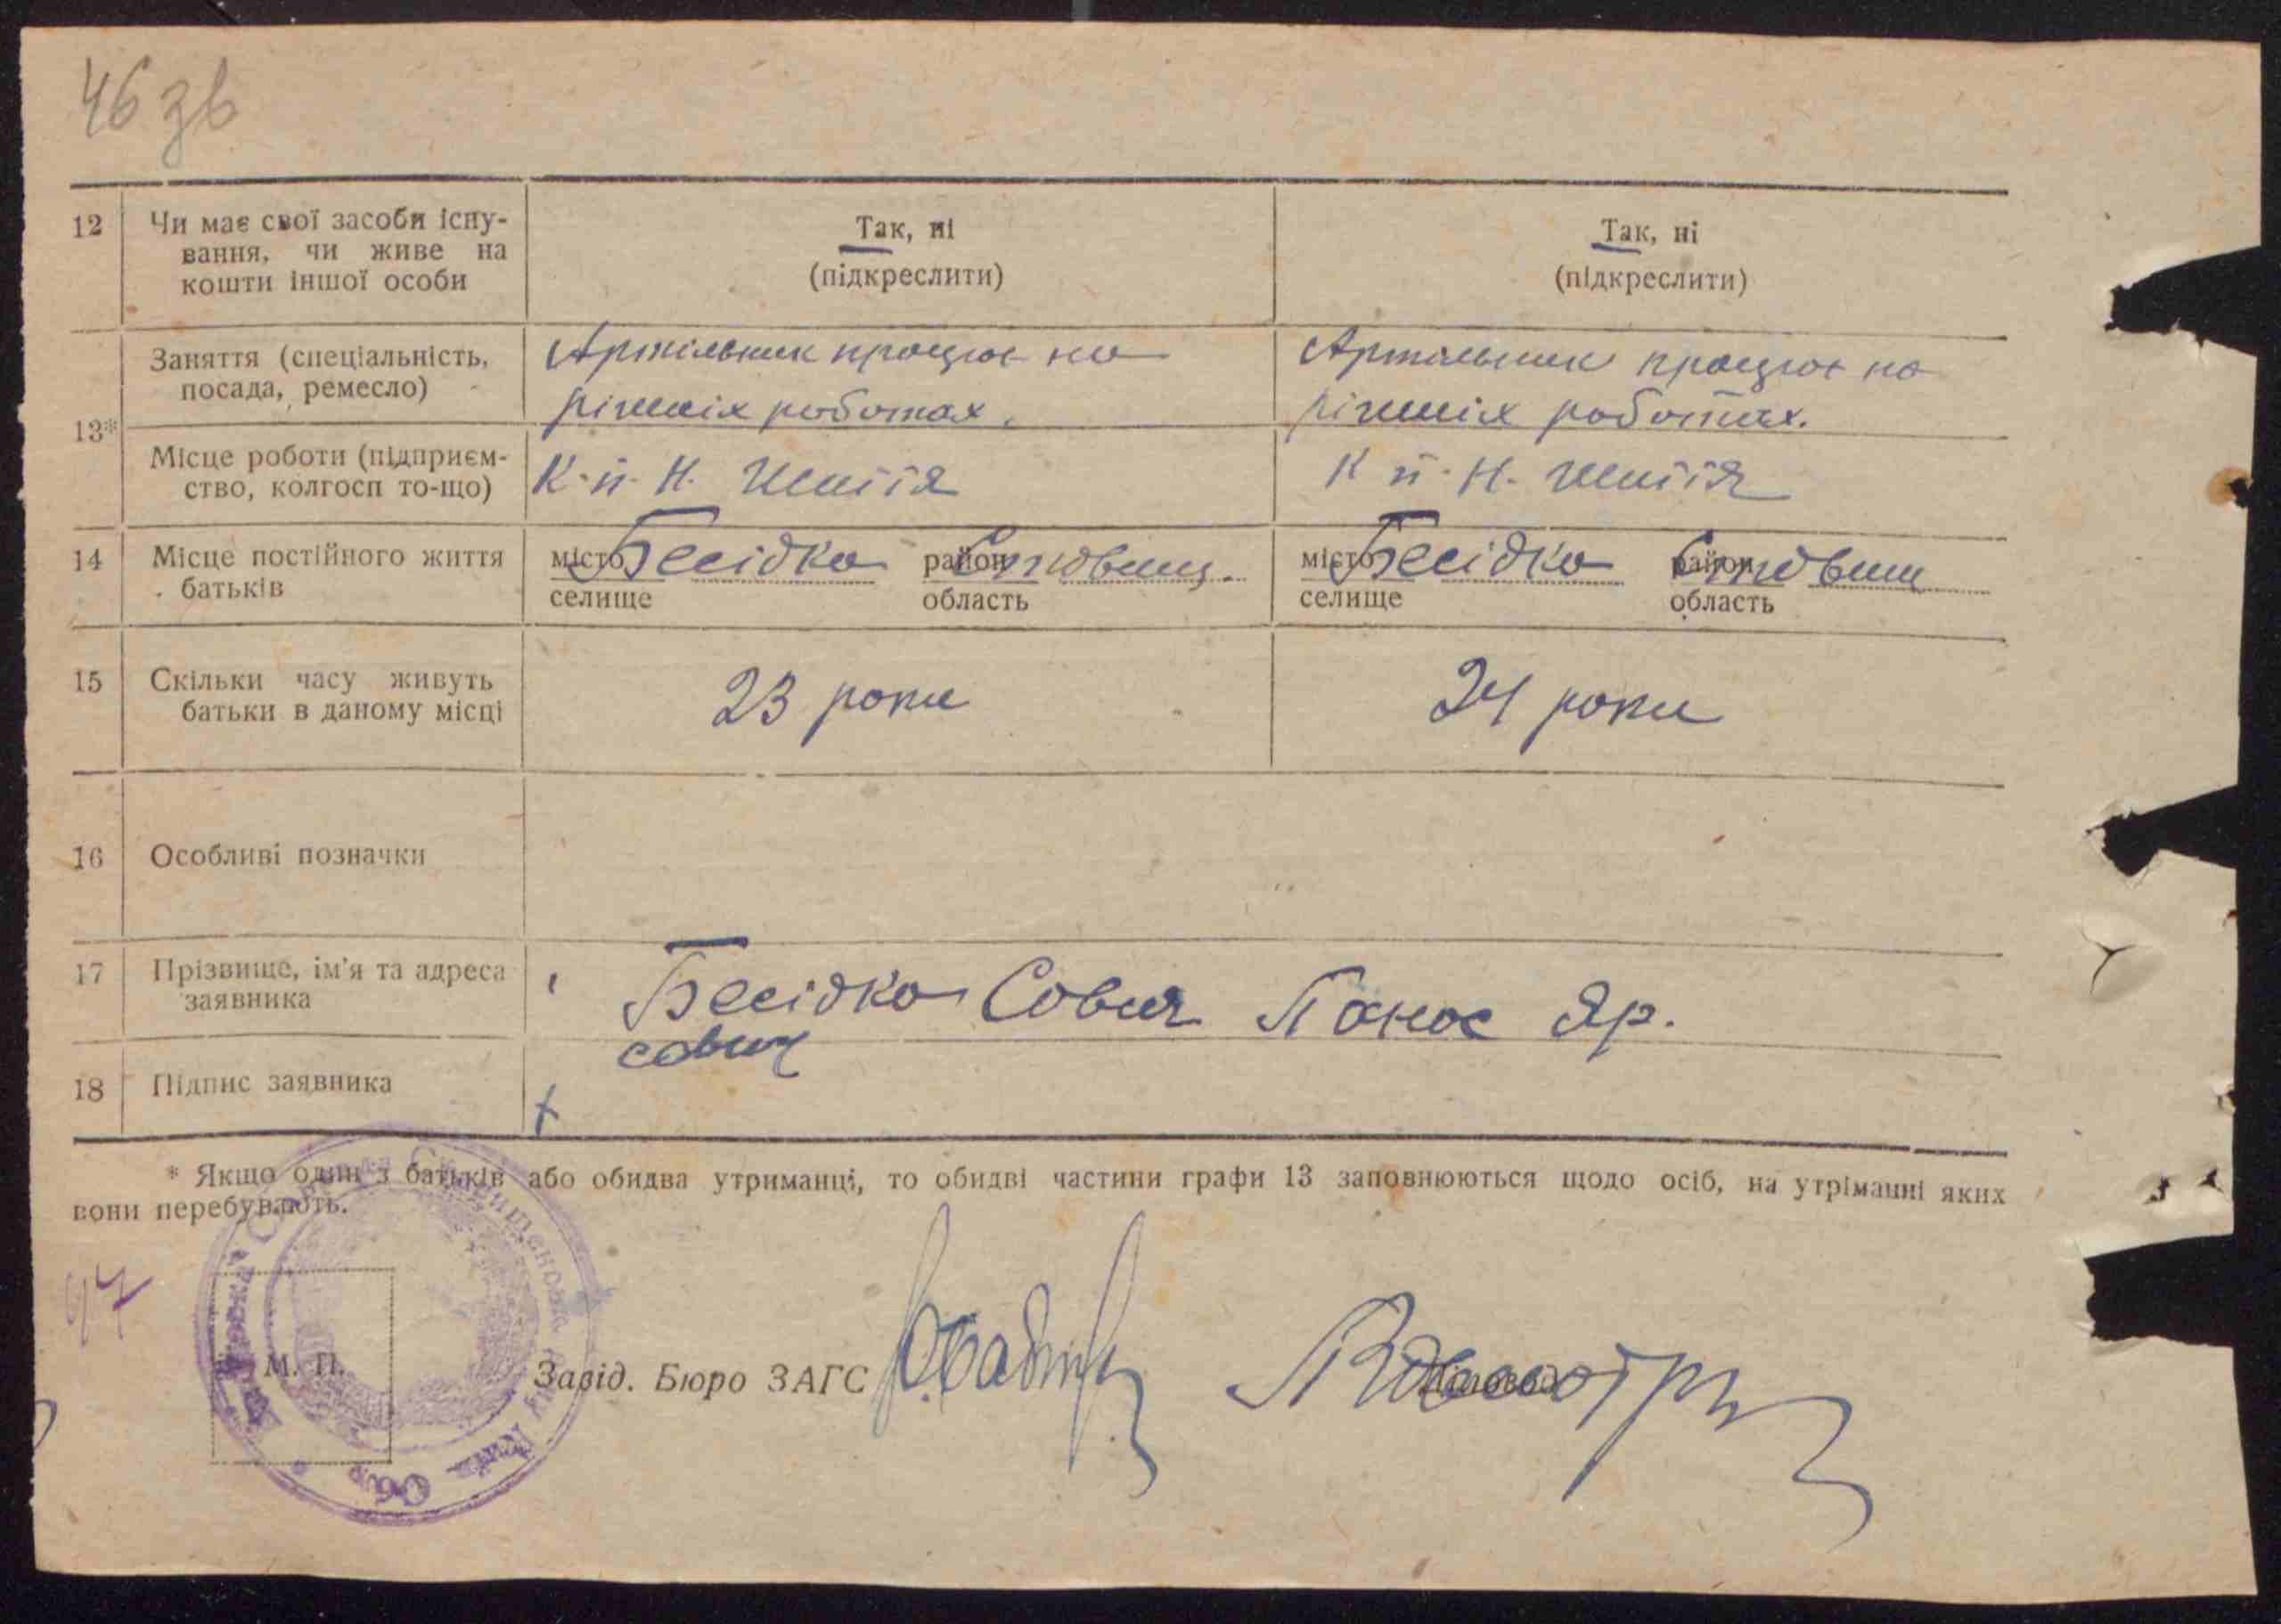 46 зв
12 Чи має свої засоби існу-
вання, чи живе на
кошти іншої особи
Так, ні
(підкреслити)
Так, ні
(підкреслити)
13*
Заняття (спеціальність,
посада, ремесло)
Артільник працює на
різних роботах.
Артільник працює на
різних роботах.
Місце роботи (підприєм-
ство, колгосп то-що)
К-п. Н. Життя
К п. Н. Життя
14 Місце постійного життя
батьків
місто Бесідка район
селище область
місто Бесідка район
селище область
15 Скільки часу живуть
батьки в даному місці
23 роки
24 роки
16 Особливі позначки
17 Прізвище, ім'я та адреса
заявника
Бесідка Панас Яр.
18 Підпис заявника
* Якщо один з батьків або обидва утриманці, то обидві частини графи 13 заповнюються щодо осіб, на утріманні яких
вони перебувають.
М. П.
Завід. Бюро ЗАГС
Діловод